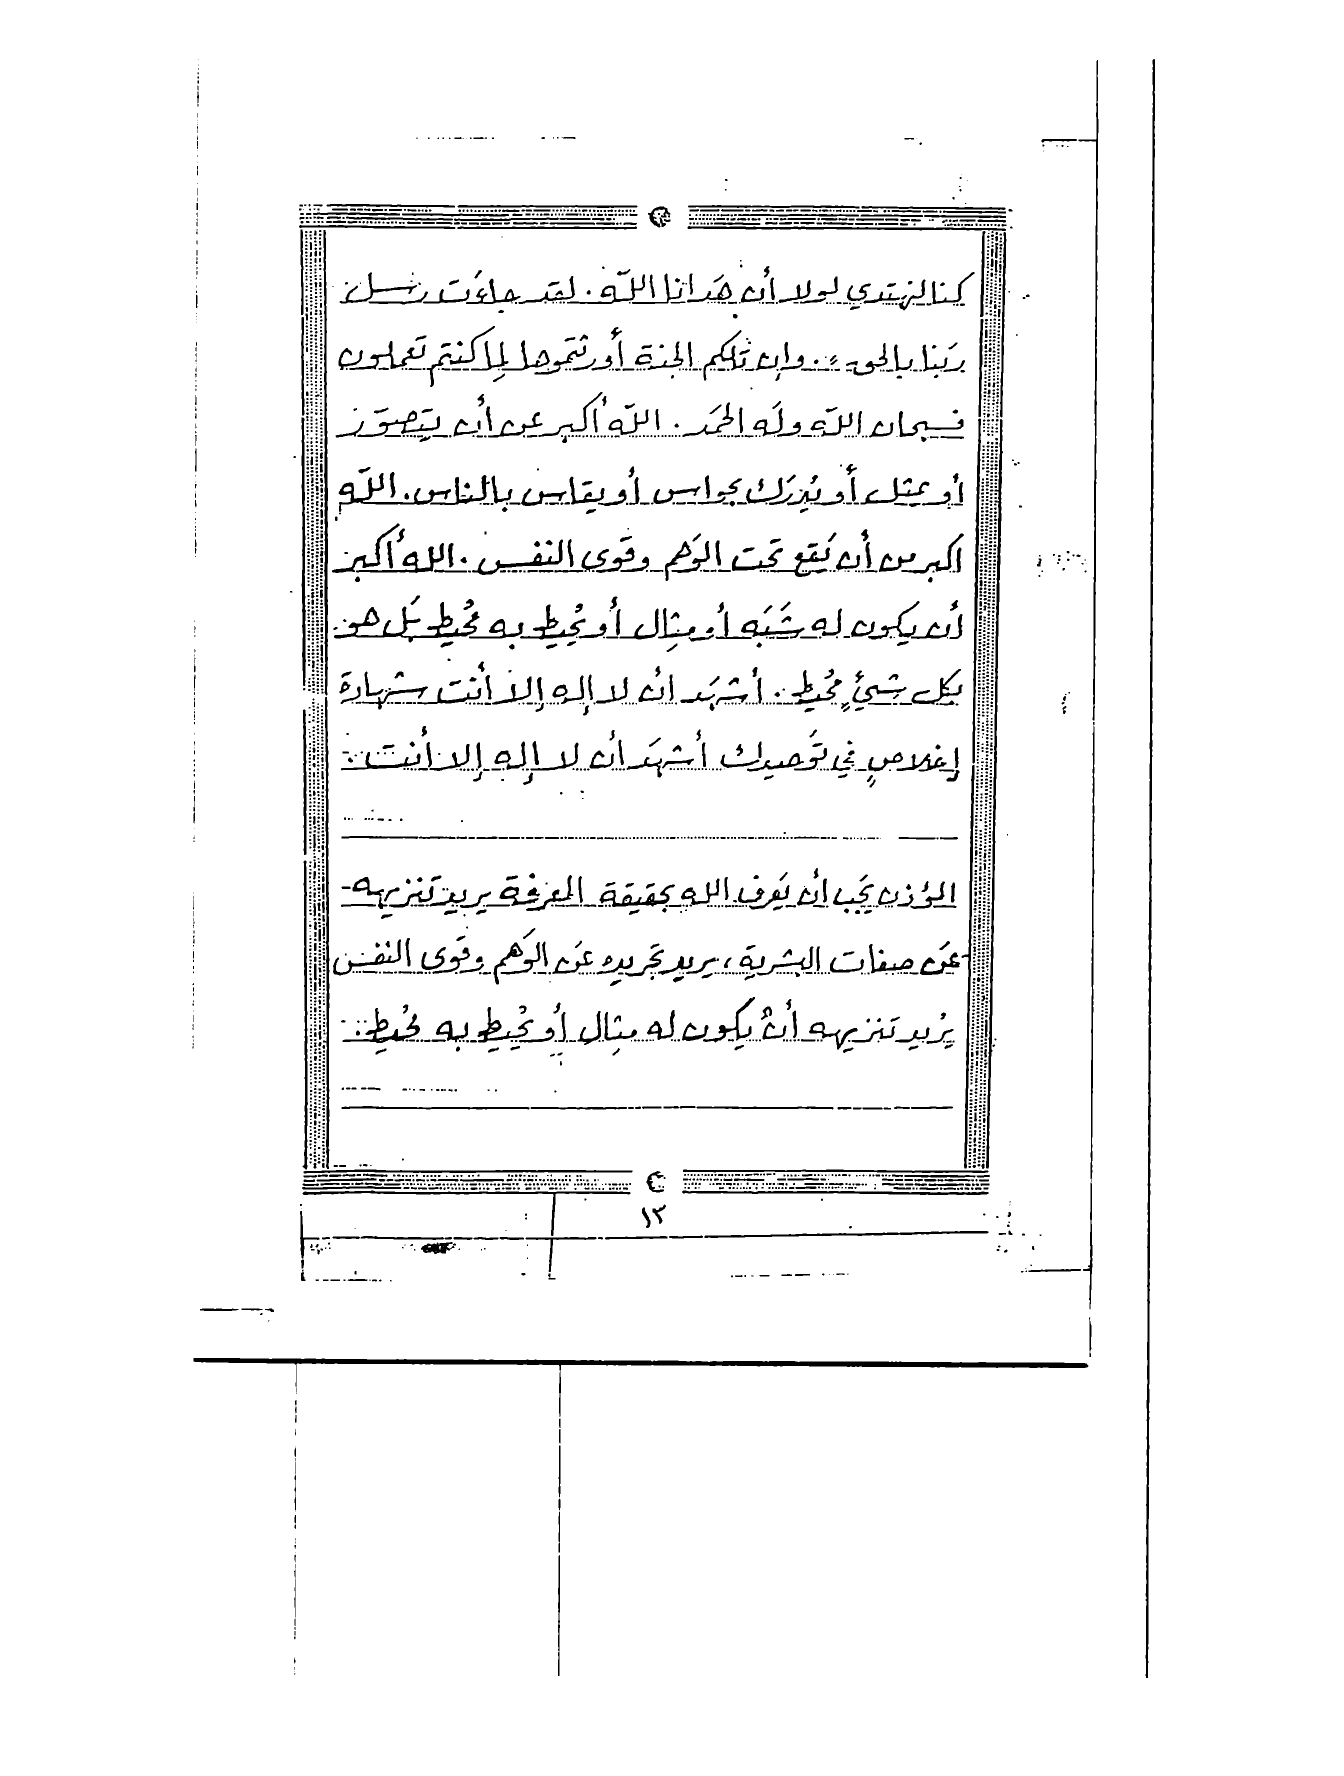 كنا لنهتدي لولا أن هَدانا اللّه. لقد جاءَت رسل
ربَنا بالحق .. وإن تلكم الجنة أورثتموها لِما كنتم تَعملون
فسبحان اللّه ولَه الحمَد . اللّه أكبر عن أن يتَصوَر
أو يمثل أو يُدرَك بحواس أو يقاس بالناس. اللّه
اكبر من أن يَقع تحت الوَهم وقوى النفس . الله أكبر
أن يكون له شَبَه أو مِثال أو يُحِيط به مُحيط بَل هو
بكل شيءٍ مُحيط . أشهَد أن لا إله إلا أنت شهادة
إخلاصٍ في تَوحيدك أشهَد أن لا إله إلا أنت .
المؤذن يَجب أن يَعرف الله بحقيقة المعرفة يريد تَنزيهه
عَن صفات البشرية ، يريد تَجريده عَن الوَهم وقَوى النفس
يُريد تَنزيهه أنْ يكون له مِثال أو يُحيط به مُحيط .
١٢